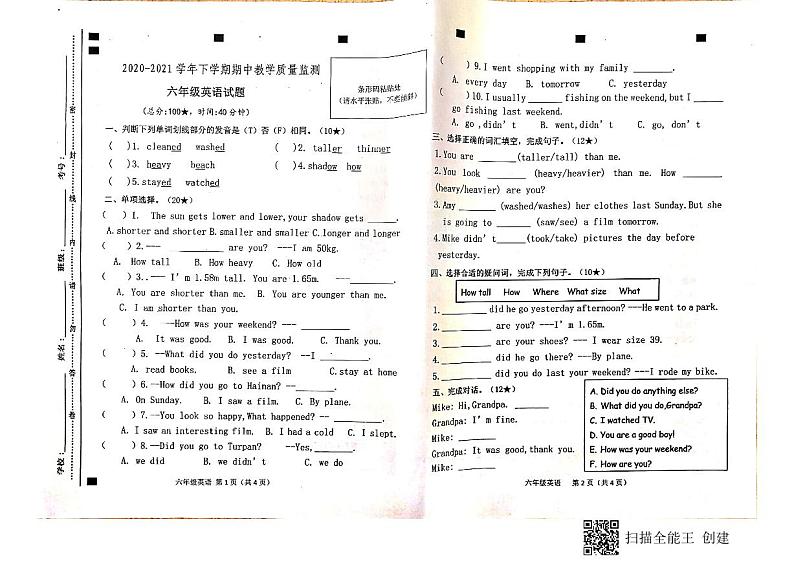 2020-2021 学年下学期期中教学质量监测
六年级英语试题
(总分:100★, 时间:40分钟)
条形码粘贴处
(请水平张贴, 不要倾斜)
学校: 姓名: 班级: 考号:
密 封 线 内 请 勿 答 卷
一、判断下列单词划线部分的发音是 (T) 否 (F) 相同。(10★)
( )1. cleaned washed ( )2. taller thinner
( )3. heavy beach ( )4.shadow how
( )5.stayed watched
二、单项选择。(20★)
( )1. The sun gets lower and lower,your shadow gets _____.
A.shorter and shorter B.smaller and smaller C.longer and longer
( )2.--- _________ are you? ---I am 50kg.
A. How tall B. How heavy C. How old
( )3..--- I'm 1.58m tall. You are 1.65m. ---________.
A. You are shorter than me. B. You are younger than me.
C. I am shorter than you.
( )4. --How was your weekend? --- ________
A. It was good. B. I was good. C. Thank you.
( )5. --What did you do yesterday? --I ________.
A. read books. B. see a film C.stay at home
( )6.--How did you go to Hainan? --_______.
A. On Sunday. B. I saw a film. C. By plane.
( )7.--You look so happy,What happened? -- ________.
A. I saw an interesting film. B. I had a cold C. I slept.
( )8.—Did you go to Turpan? —Yes,________.
A. we did B. we didn't C. we do
六年级英语 第1页 (共4页)
( )9. I went shopping with my family _______.
A. every day B. tomorrow C. yesterday
( )10. I usually ______ fishing on the weekend, but I _____
go fishing last weekend.
A. go ,didn't B. went,didn't C. go, don't
三、选择正确的词汇填空, 完成句子。(12★)
1.You are _______(taller/tall) than me.
2.You look _______ (heavy/heavier) than me. How _______
(heavy/heavier) are you?
3.Amy _______ (washed/washes) her clothes last Sunday.But she
is going to ______ (saw/see) a film tomorrow.
4.Mike didn't______(took/take) pictures the day before
yesterday.
四、选择合适的疑问词, 完成下列句子。(10★)
How tall How Where What size What
1.________ did he go yesterday afternoon? ---He went to a park.
2.________ are you? ---I'm 1.65m.
3.________ are your shoes? --- I wear size 39.
4.________ did he go there? ---By plane.
5.________ did you do last your weekend? ---I rode my bike.
五、完成对话。(12★)
Mike: Hi,Grandpa. ________
Grandpa: I'm fine.
Mike: ________
Grandpa: It was good,thank you.
Mike: ________
A. Did you do anything else?
B. What did you do,Grandpa?
C. I watched TV.
D. You are a good boy!
E. How was your weekend?
F. How are you?
六年级英语 第2页 (共4页)
扫描全能王 创建